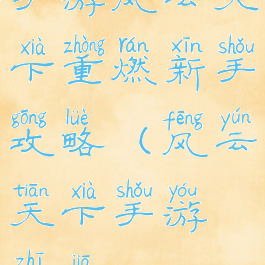 游风云天
xià zhòng rán xīn shǒu
下重燃新手
gōng lüè fēng yún
攻略（风云
tiān xià shǒu yóu
天下手游
zhī jiā